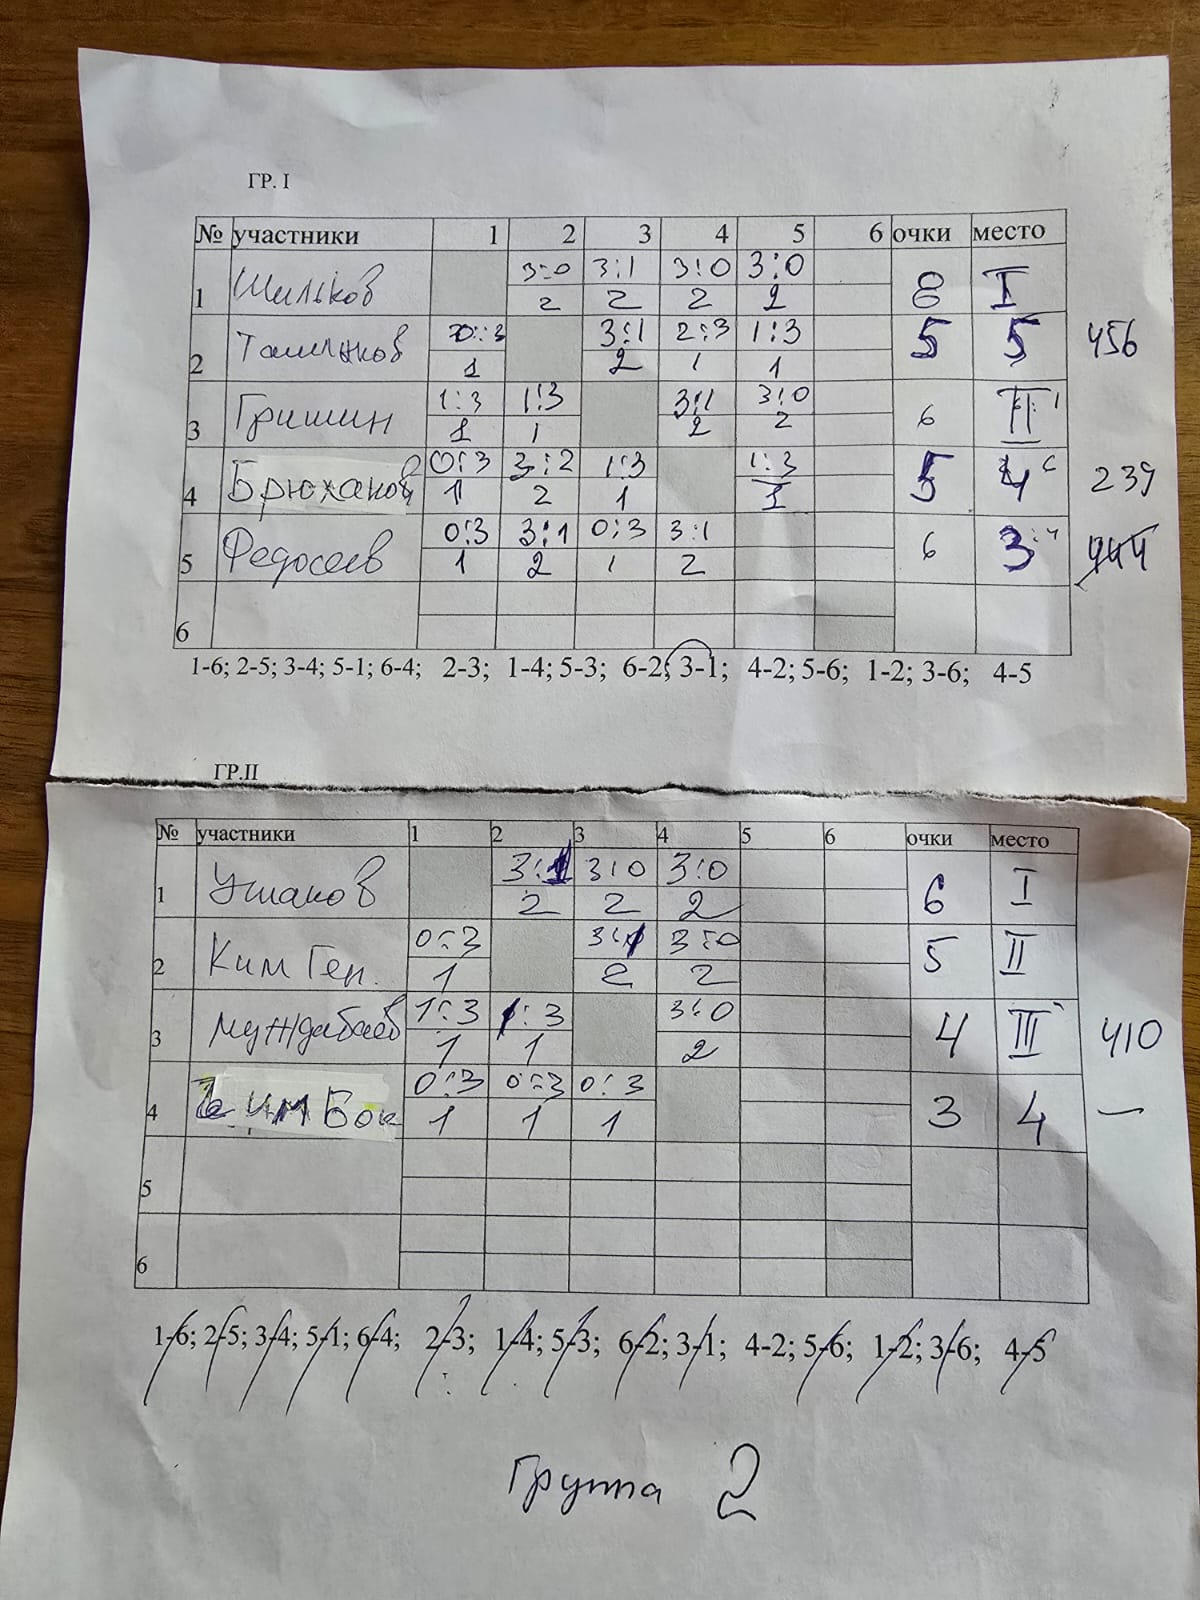 ГР. I
№ участники 1 2 3 4 5 6 очки место
1 Шильков 3:0 3:1 3:0 3:0 8 I
2 2 2 2
2 0:3 3:1 2:3 1:3 5 5 456
1 2 1 1
3 Гришин 1:3 1:3 3:1 3:0 6 II
1 1 2 2
4 Брюханов 0:3 3:2 1:3 1:3 5 4 239
1 2 1 1
5 Федосеев 0:3 3:1 0:3 3:1 6 3 444
1 2 1 2
6
1-6; 2-5; 3-4; 5-1; 6-4; 2-3; 1-4; 5-3; 6-2; 3-1; 4-2; 5-6; 1-2; 3-6; 4-5
ГР.II
№ участники 1 2 3 4 5 6 очки место
1 Ушаков 3:1 3:0 3:0 6 I
2 2 2
2 Ким Ген. 0:3 3:1 3:0 5 II
1 2 2
3 Муждабаев 1:3 1:3 3:0 4 III 410
1 1 2
4 Ким Бок 0:3 0:3 0:3 3 4 —
1 1 1
5
6
1-6; 2-5; 3-4; 5-1; 6-4; 2-3; 1-4; 5-3; 6-2; 3-1; 4-2; 5-6; 1-2; 3-6; 4-5
Группа 2